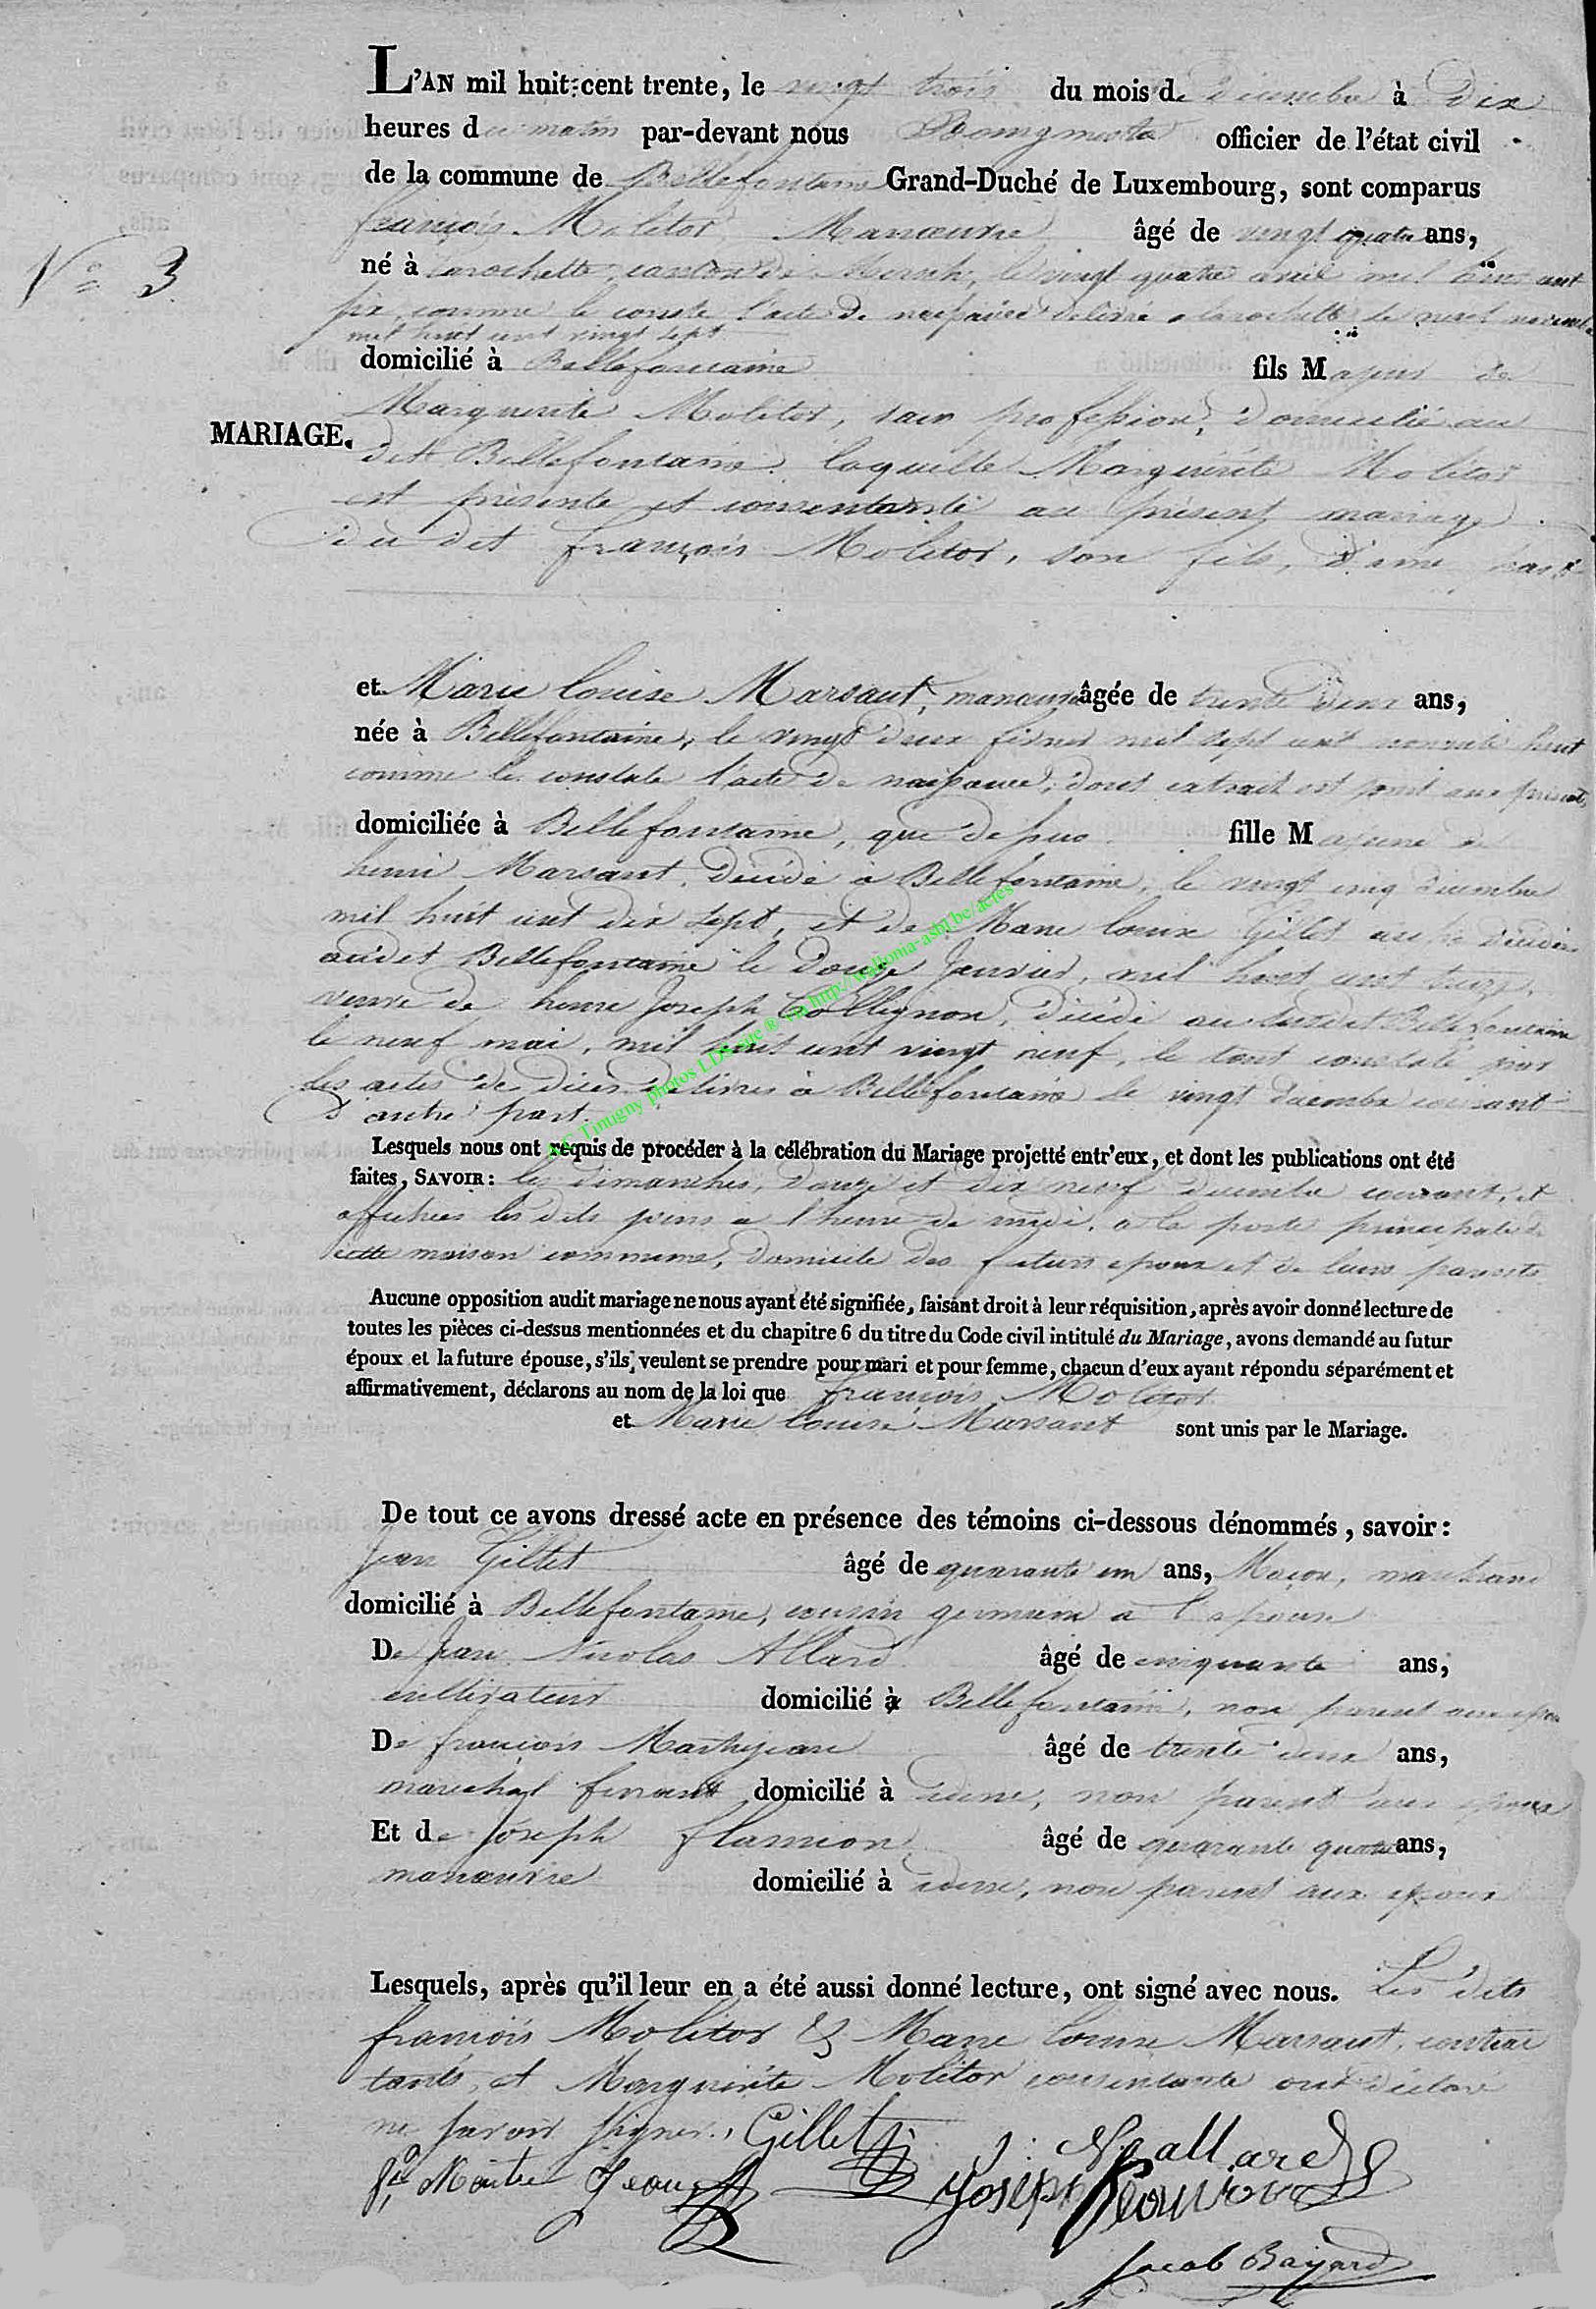 L'AN mil huit-cent trente, le vingt trois du mois de décembre à dix
heures du matin par-devant nous officier de l'état civil
de la commune de Bellefontaine Grand-Duché de Luxembourg, sont comparus
françois Molitor Manœuvre âgé de vingt quatre ans,
N° 3
né à Larochette, canton de Mersch, le vingt quatre avril mil huit cent
six, comme le conste l'acte de naissance délivré a larochette le neuf novembre
mil huit cent vingt sept
domicilié à Bellefontaine fils Majeur de
Marguerite Molitor, sans profession, domiciliée au
MARIAGE.
dit Bellefontaine laquelle Marguerite Molitor
est présente et consentante au présent mariage
du dit françois Molitor, son fils, d'une part
et Marie Louise Marsaut, manœuvre âgée de trente deux ans,
née à Bellefontaine, le vingt deux février mil sept cent nonante huit
comme le constate l'acte de naissance, dont extrait est joint aux présentes
domiciliée à Bellefontaine, que dessus fille Majeure de
henri Marsaut, décédé à Bellefontaine, le vingt cinq décembre
mil huit cent dix sept, et de Marie Louise Gillet aussi décédée
audit Bellefontaine le douze Janvier, mil huit cent treize,
veuve de henri Joseph Collignon, décédé au susdit Bellefontaine
le neuf mai, mil huit cent vingt neuf, le tout constaté par
les actes de décès délivrés à Bellefontaine le vingt décembre courant
d'autre part.
A.C. Tintigny photos LDS sue ® via http://wallonia-asbl.be/actes
Lesquels nous ont requis de procéder à la célébration du Mariage projetté entr'eux, et dont les publications ont été
faites, SAVOIR : les dimanches, douze et dix neuf décembre courant, et
affichées les dits jours a l'heure de midi, a la porte principale de
cette maison commune, domicile des futurs epoux et de leurs parents
Aucune opposition audit mariage ne nous ayant été signifiée, faisant droit à leur réquisition, après avoir donné lecture de
toutes les pièces ci-dessus mentionnées et du chapitre 6 du titre du Code civil intitulé du Mariage, avons demandé au futur
époux et la future épouse, s'ils veulent se prendre pour mari et pour femme, chacun d'eux ayant répondu séparément et
affirmativement, déclarons au nom de la loi que françois Molitor
et Marie Louise Marsaut sont unis par le Mariage.
De tout ce avons dressé acte en présence des témoins ci-dessous dénommés, savoir :
Jean Gillet âgé de quarante un ans, Maçon,
domicilié à Bellefontaine, cousin germain a l'epouse
De Jean Nicolas Allard âgé de cinquante ans,
cultivateur domicilié à Bellefontaine, non parent aux epoux
De françois âgé de trente deux ans,
marechal ferrant domicilié à idem, non parent aux epoux
Et de Joseph flamion âgé de quarante quatre ans,
manœuvre domicilié à idem, non parent aux epoux
Lesquels, après qu'il leur en a été aussi donné lecture, ont signé avec nous. Les dits
françois Molitor & Marie Louise Marsaut, contrac
tants, et Marguerite Molitor consentante ont déclaré
ne savoir signer. Gillet Allard
Jean Joseph
Jacob Bayard